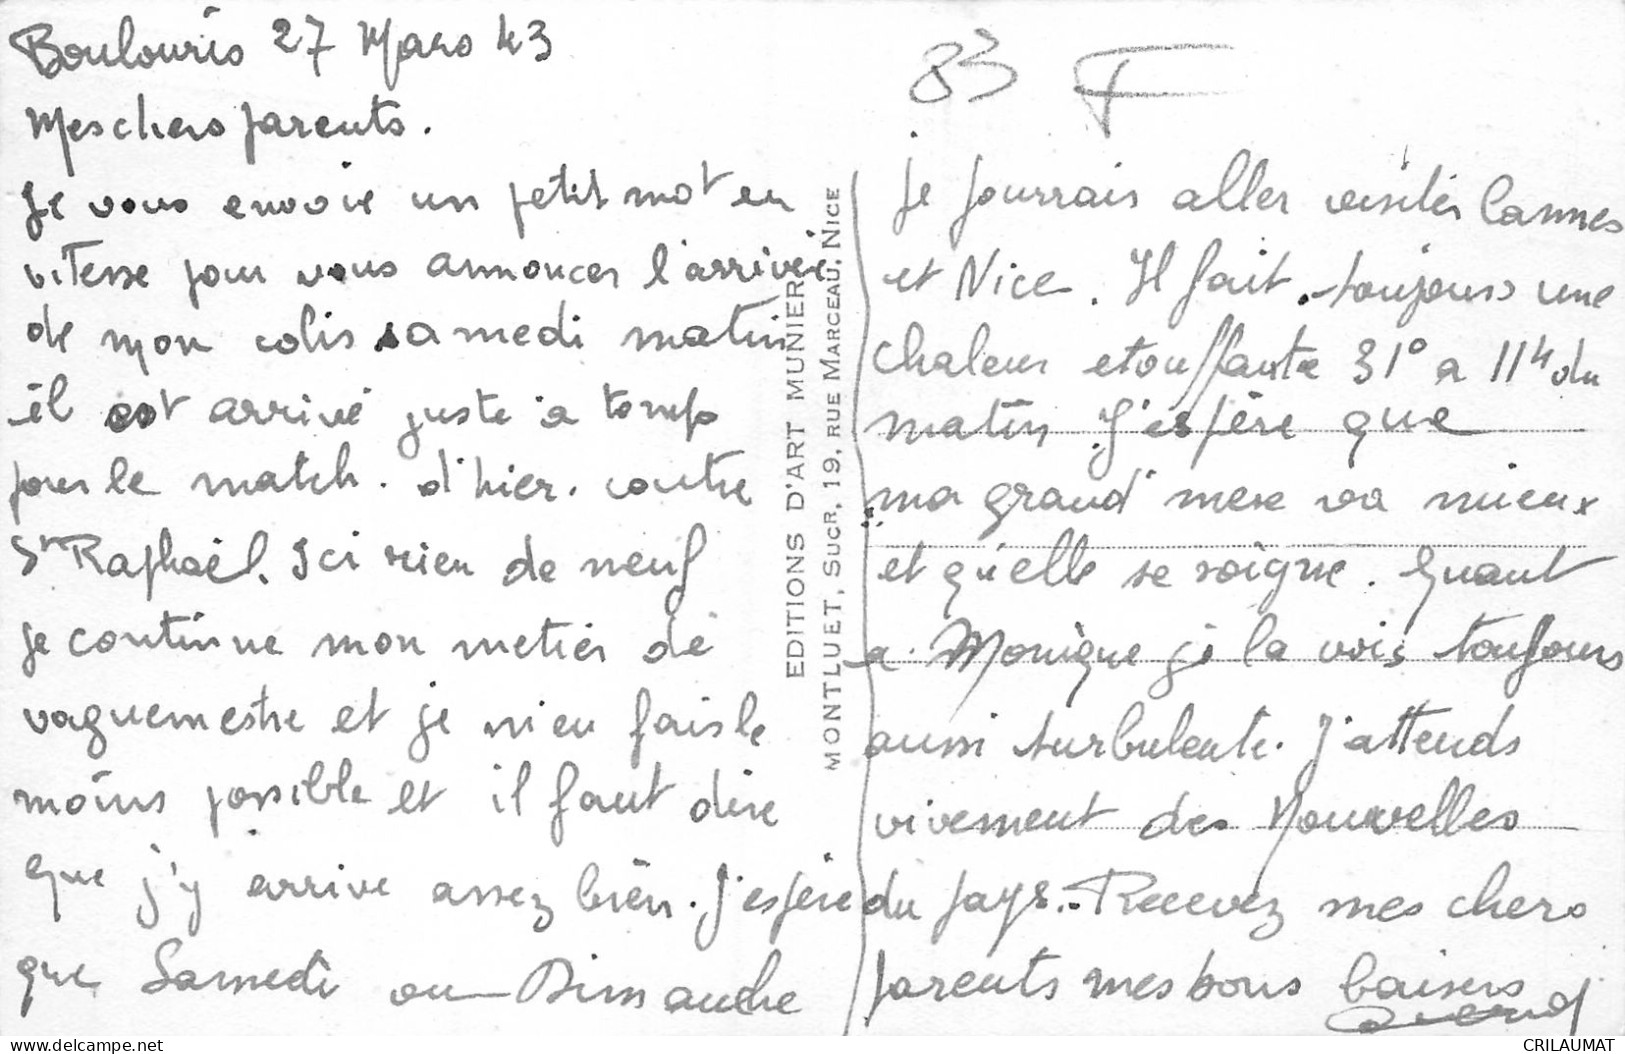 Boulouris 27 Mars 43
Mes chers parents.
Je vous envoie un petit mot en
vitesse pour vous annoncer l'arrivée
de mon colis samedi matin
il est arrivé juste a temps
pour le match. d'hier. contre
St Raphaël. Ici rien de neuf
je continue mon metier de
vaguemestre et je n'en fais le
moins possible et il faut dire
que j'y arrive assez bien. J'espère
que Samedi ou Dimanche
EDITIONS D'ART MUNIER
MONTLUET, SUCR, 19, RUE MARCEAU, NICE
83 F
je pourrais aller visiter Cannes
et Nice. Il fait toujours une
chaleur etouffante 31° a 11h du
matin. J'espère que
ma grand' mere va mieux
et qu'elle se soigne. Quant
a Monique je la vois toujours
aussi turbulente. J'attends
vivement des Nouvelles
du pays. Recevez mes chers
parents mes bons baisers
CRILAUMAT